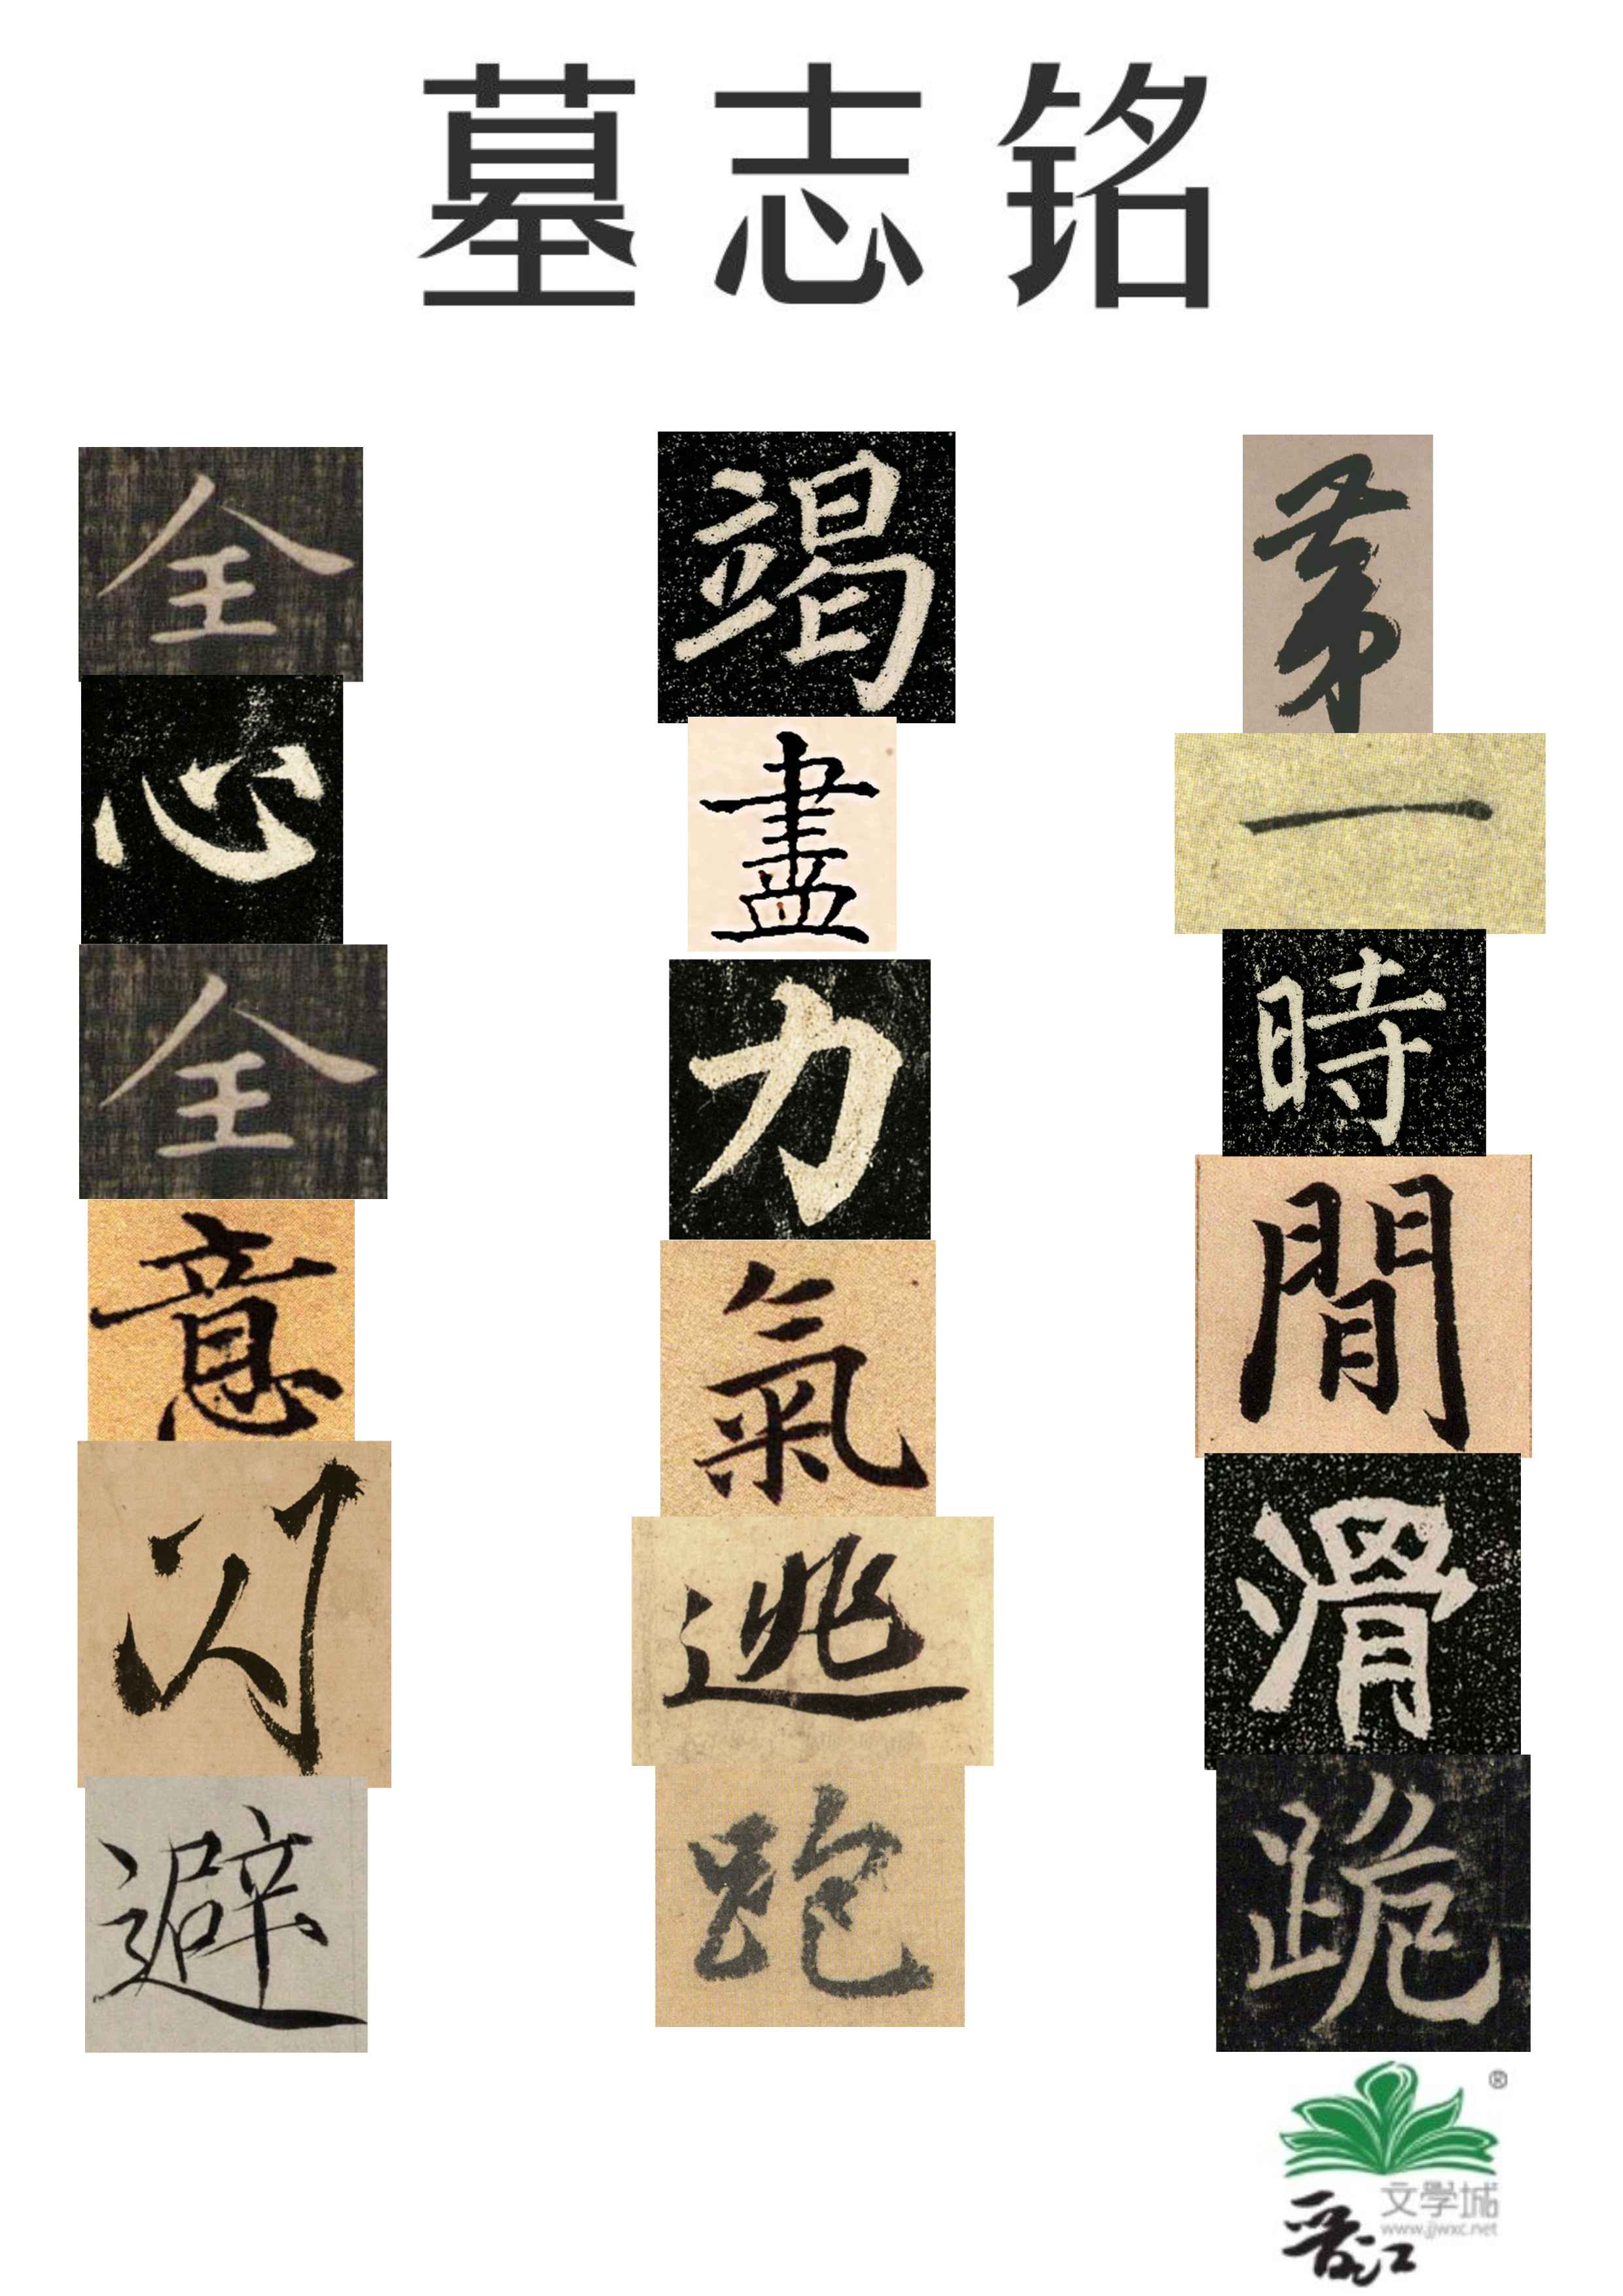 墓志铭
全心全意闪避
竭盡力氣逃跑
第一時間滑跪
®
文學城
www.jjwxc.net
晋江